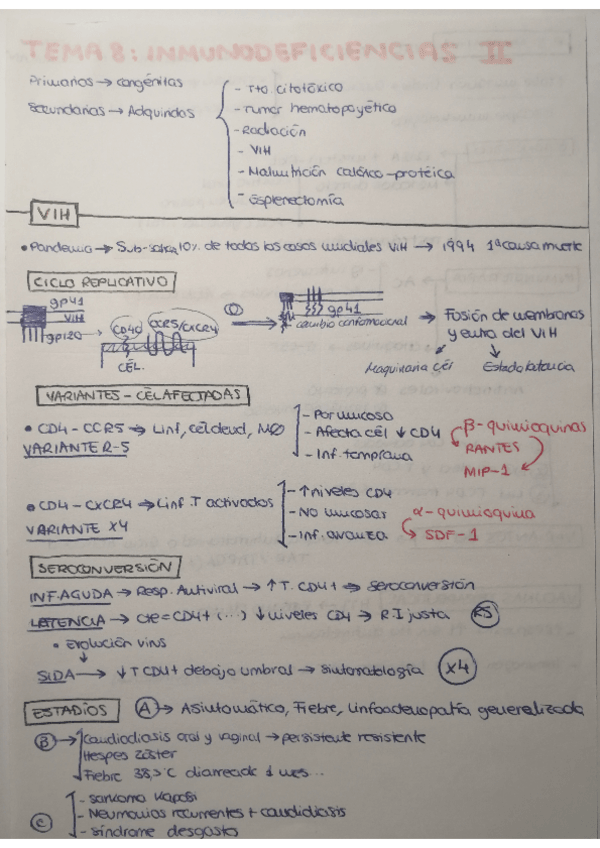 TEMA 8: INMUNODEFICIENCIAS II
Primarias → congénitas
Secundarias → Adquiridas
- Tto citotóxico
- Tumor hematopoyético
- Radiación
- VIH
- Malnutrición calórico-protéica
- Esplenectomía
VIH
• Pandemia → Sub-sahara 70% de todos los casos mundiales VIH → 1994 1ª causa muerte
CICLO REPLICATIVO
gp41
VIH
gp120
CD4
CCR5/CXCR4
CÉL.
gp41
cambio conformacional
→ Fusión de membranas
y entra del VIH
Maquinaria cél
Estado latencia
VARIANTES - CÉL AFECTADAS
• CD4 - CCR5 → Linf, cél dend, MØ
VARIANTE R-5
- Por mucosa
- Afecta cél ↓ CD4
- Inf. temprana
β-quimioquinas
RANTES
MIP-1
• CD4 - CXCR4 → Linf. T activados
VARIANTE X4
- ↑ niveles CD4
- No mucosas
- Inf. avanza
α-quimioquina
SDF-1
SEROCONVERSIÓN
INF. AGUDA → Resp. Antiviral → ↑ T. CD4+ → Seroconversión
LATENCIA → cte = CD4+ (...) ↓ niveles CD4 → R.I justa R5
• Evolución virus
SIDA → ↓ T CD4+ debajo umbral → sintomatología X4
ESTADÍOS A → Asintomático, Fiebre, linfoadenopatía generalizada
B → Candidiasis oral y vaginal → persistente resistente
Herpes Zóster
Fiebre 38,5°C diarrea de 1 mes...
C
- Sarkoma Kaposi
- Neumonías recurrentes + candidiasis
- síndrome desgaste